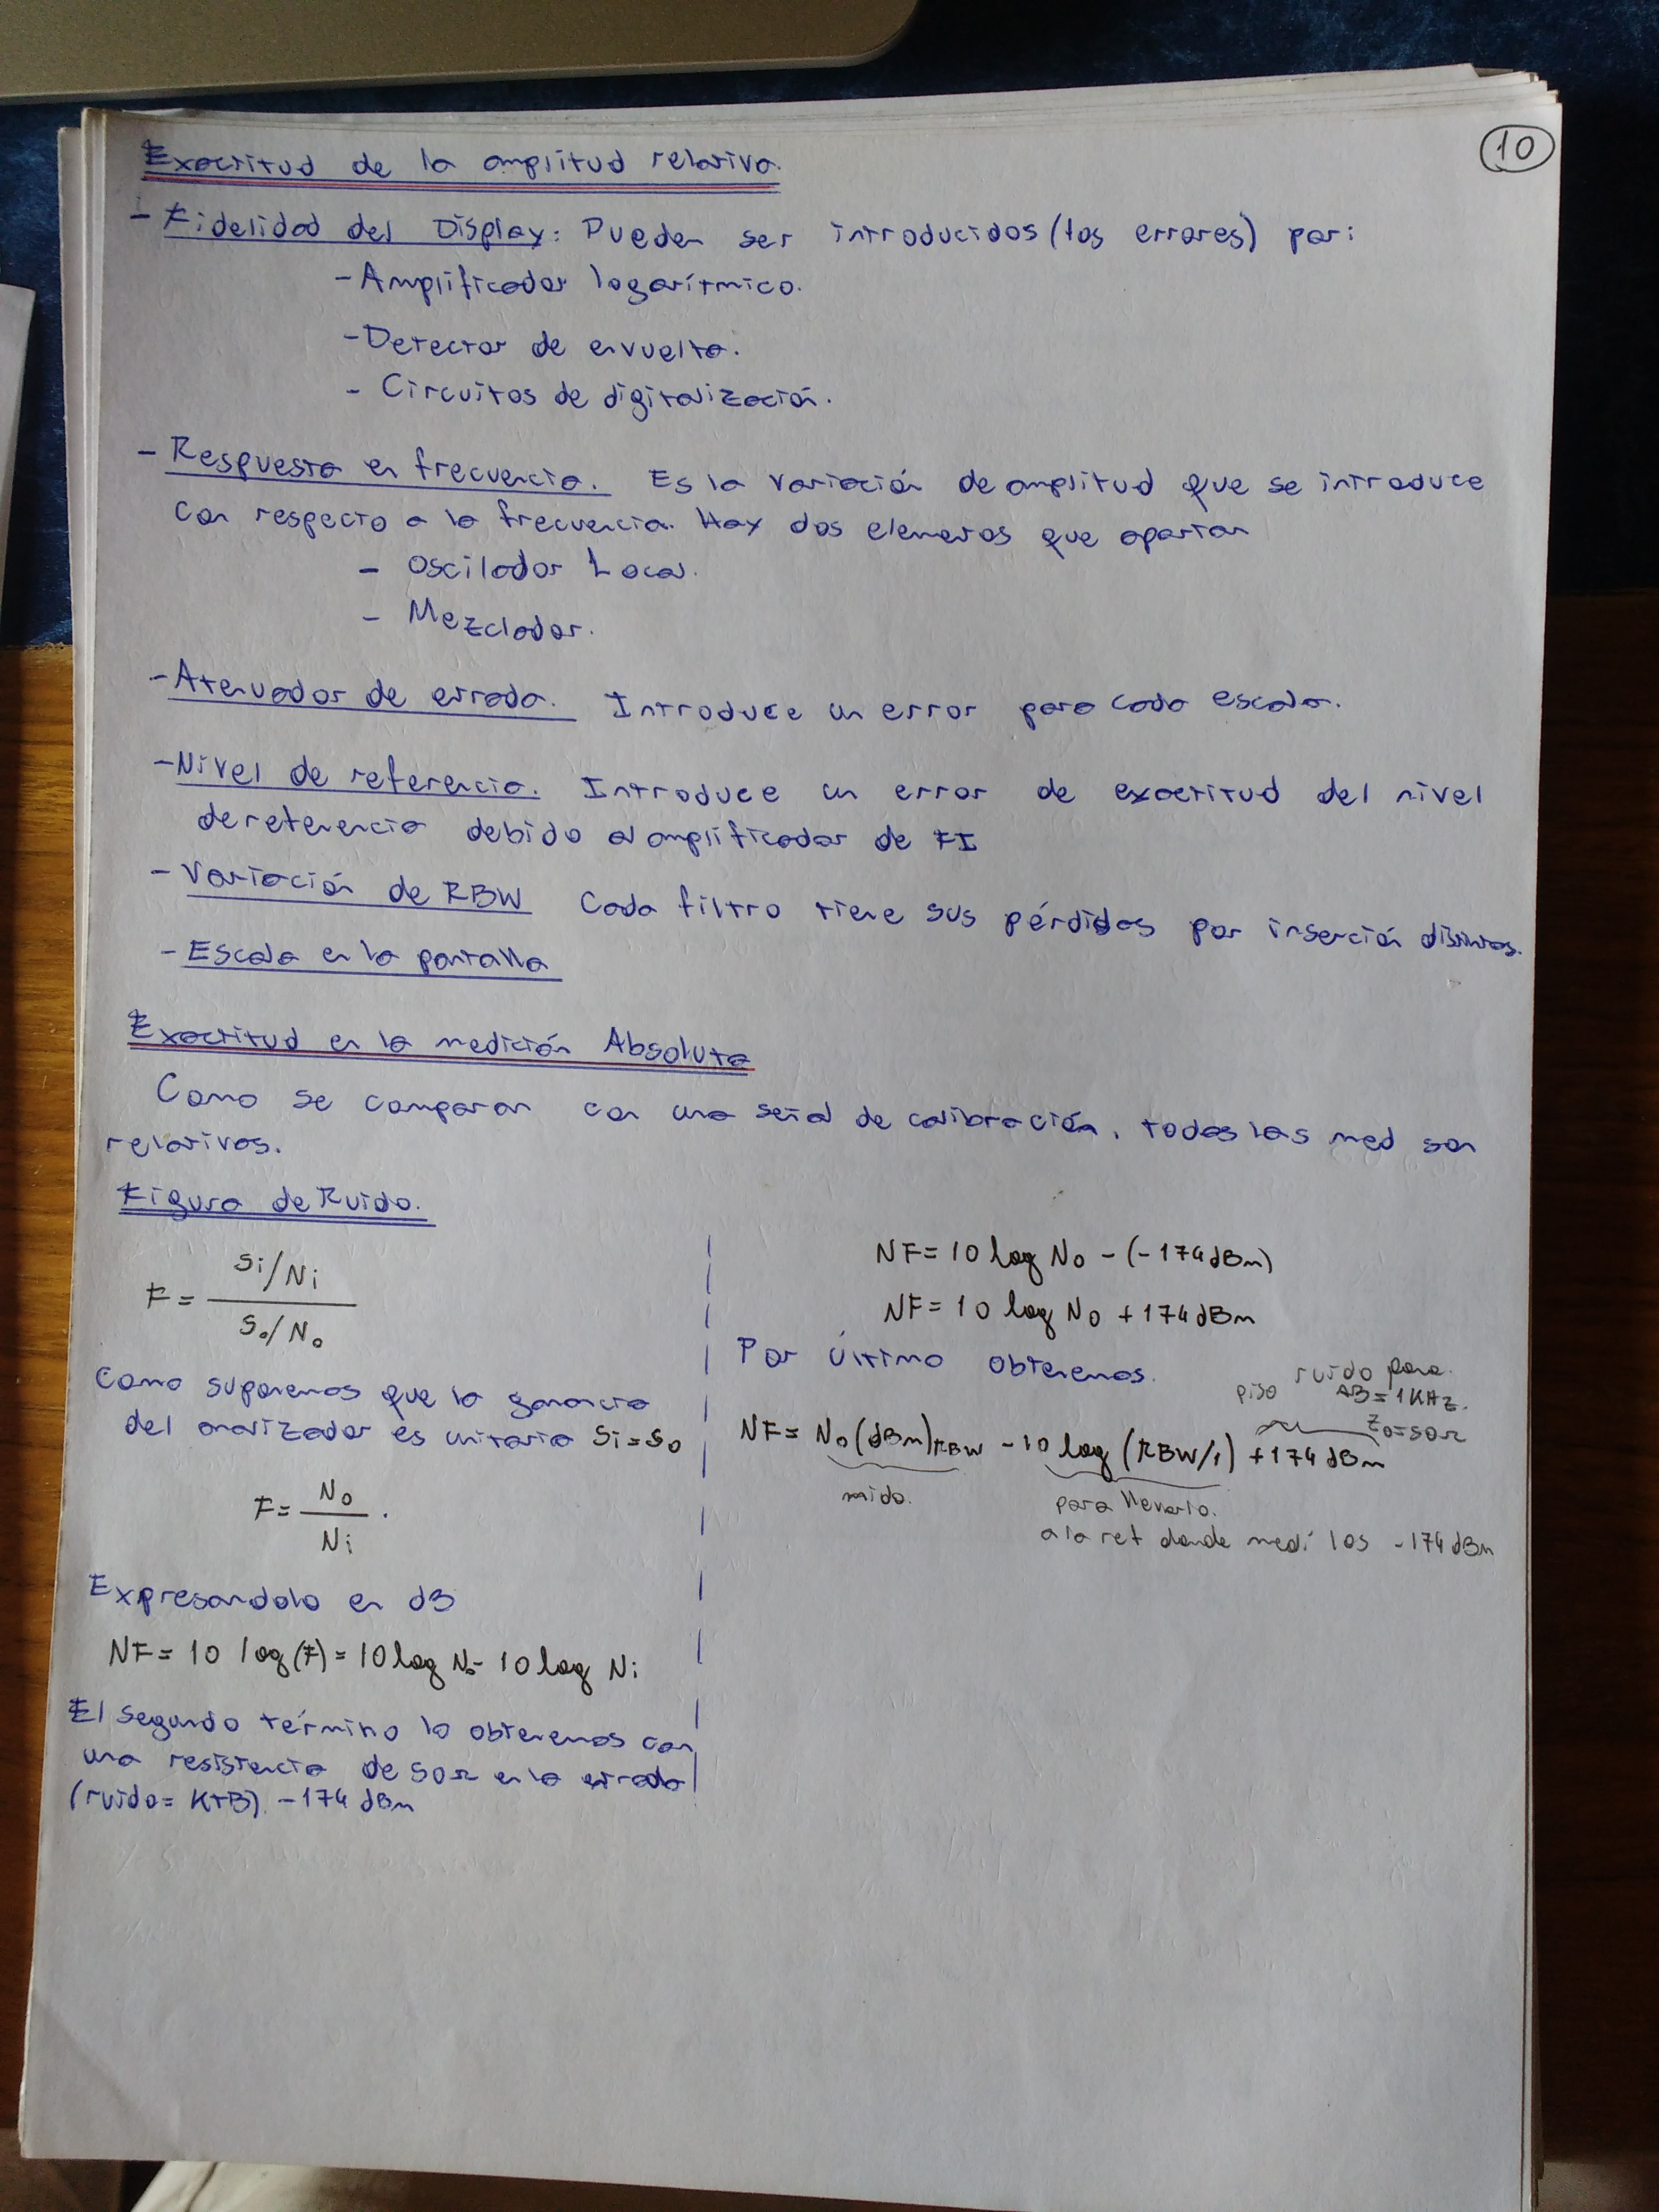 10
Exactitud de la amplitud relativa.
- Fidelidad del Display: Pueden ser introducidos (los errores) por:
- Amplificador logarítmico.
- Detector de envuelta.
- Circuitos de digitalización.
- Respuesta en frecuencia. Es la variación de amplitud que se introduce
con respecto a la frecuencia. Hay dos elementos que aportan
- Oscilador Local.
- Mezclador.
- Atenuador de entrada. Introduce un error para cada escala.
- Nivel de referencia. Introduce un error de exactitud del nivel
de referencia debido al amplificador de FI
- Variación de RBW Cada filtro tiene sus pérdidas por inserción distintas.
- Escala en la pantalla
Exactitud en la medición Absoluta
Como se comparan con una señal de calibración, todas las med son
relativas.
Figura de Ruido.
F = Si/Ni
So/No
Como suponemos que la ganancia
del analizador es unitaria Si=So
F= No
Ni
Expresandolo en dB
NF= 10 log(F) = 10 log No - 10 log Ni
El segundo término lo obtenemos con
una resistencia de 50Ω en la entrada
(ruido= KTB) -174 dBm
NF= 10 log No - (-174dBm)
NF= 10 log No + 174 dBm
Por último obtenemos.
piso ruido para
AB=1KHz.
Zo=50Ω
NF= No(dBm)RBW - 10 log (RBW/1) + 174 dBm
mido.
para llevarlo.
a la ref donde medí los -174 dBm